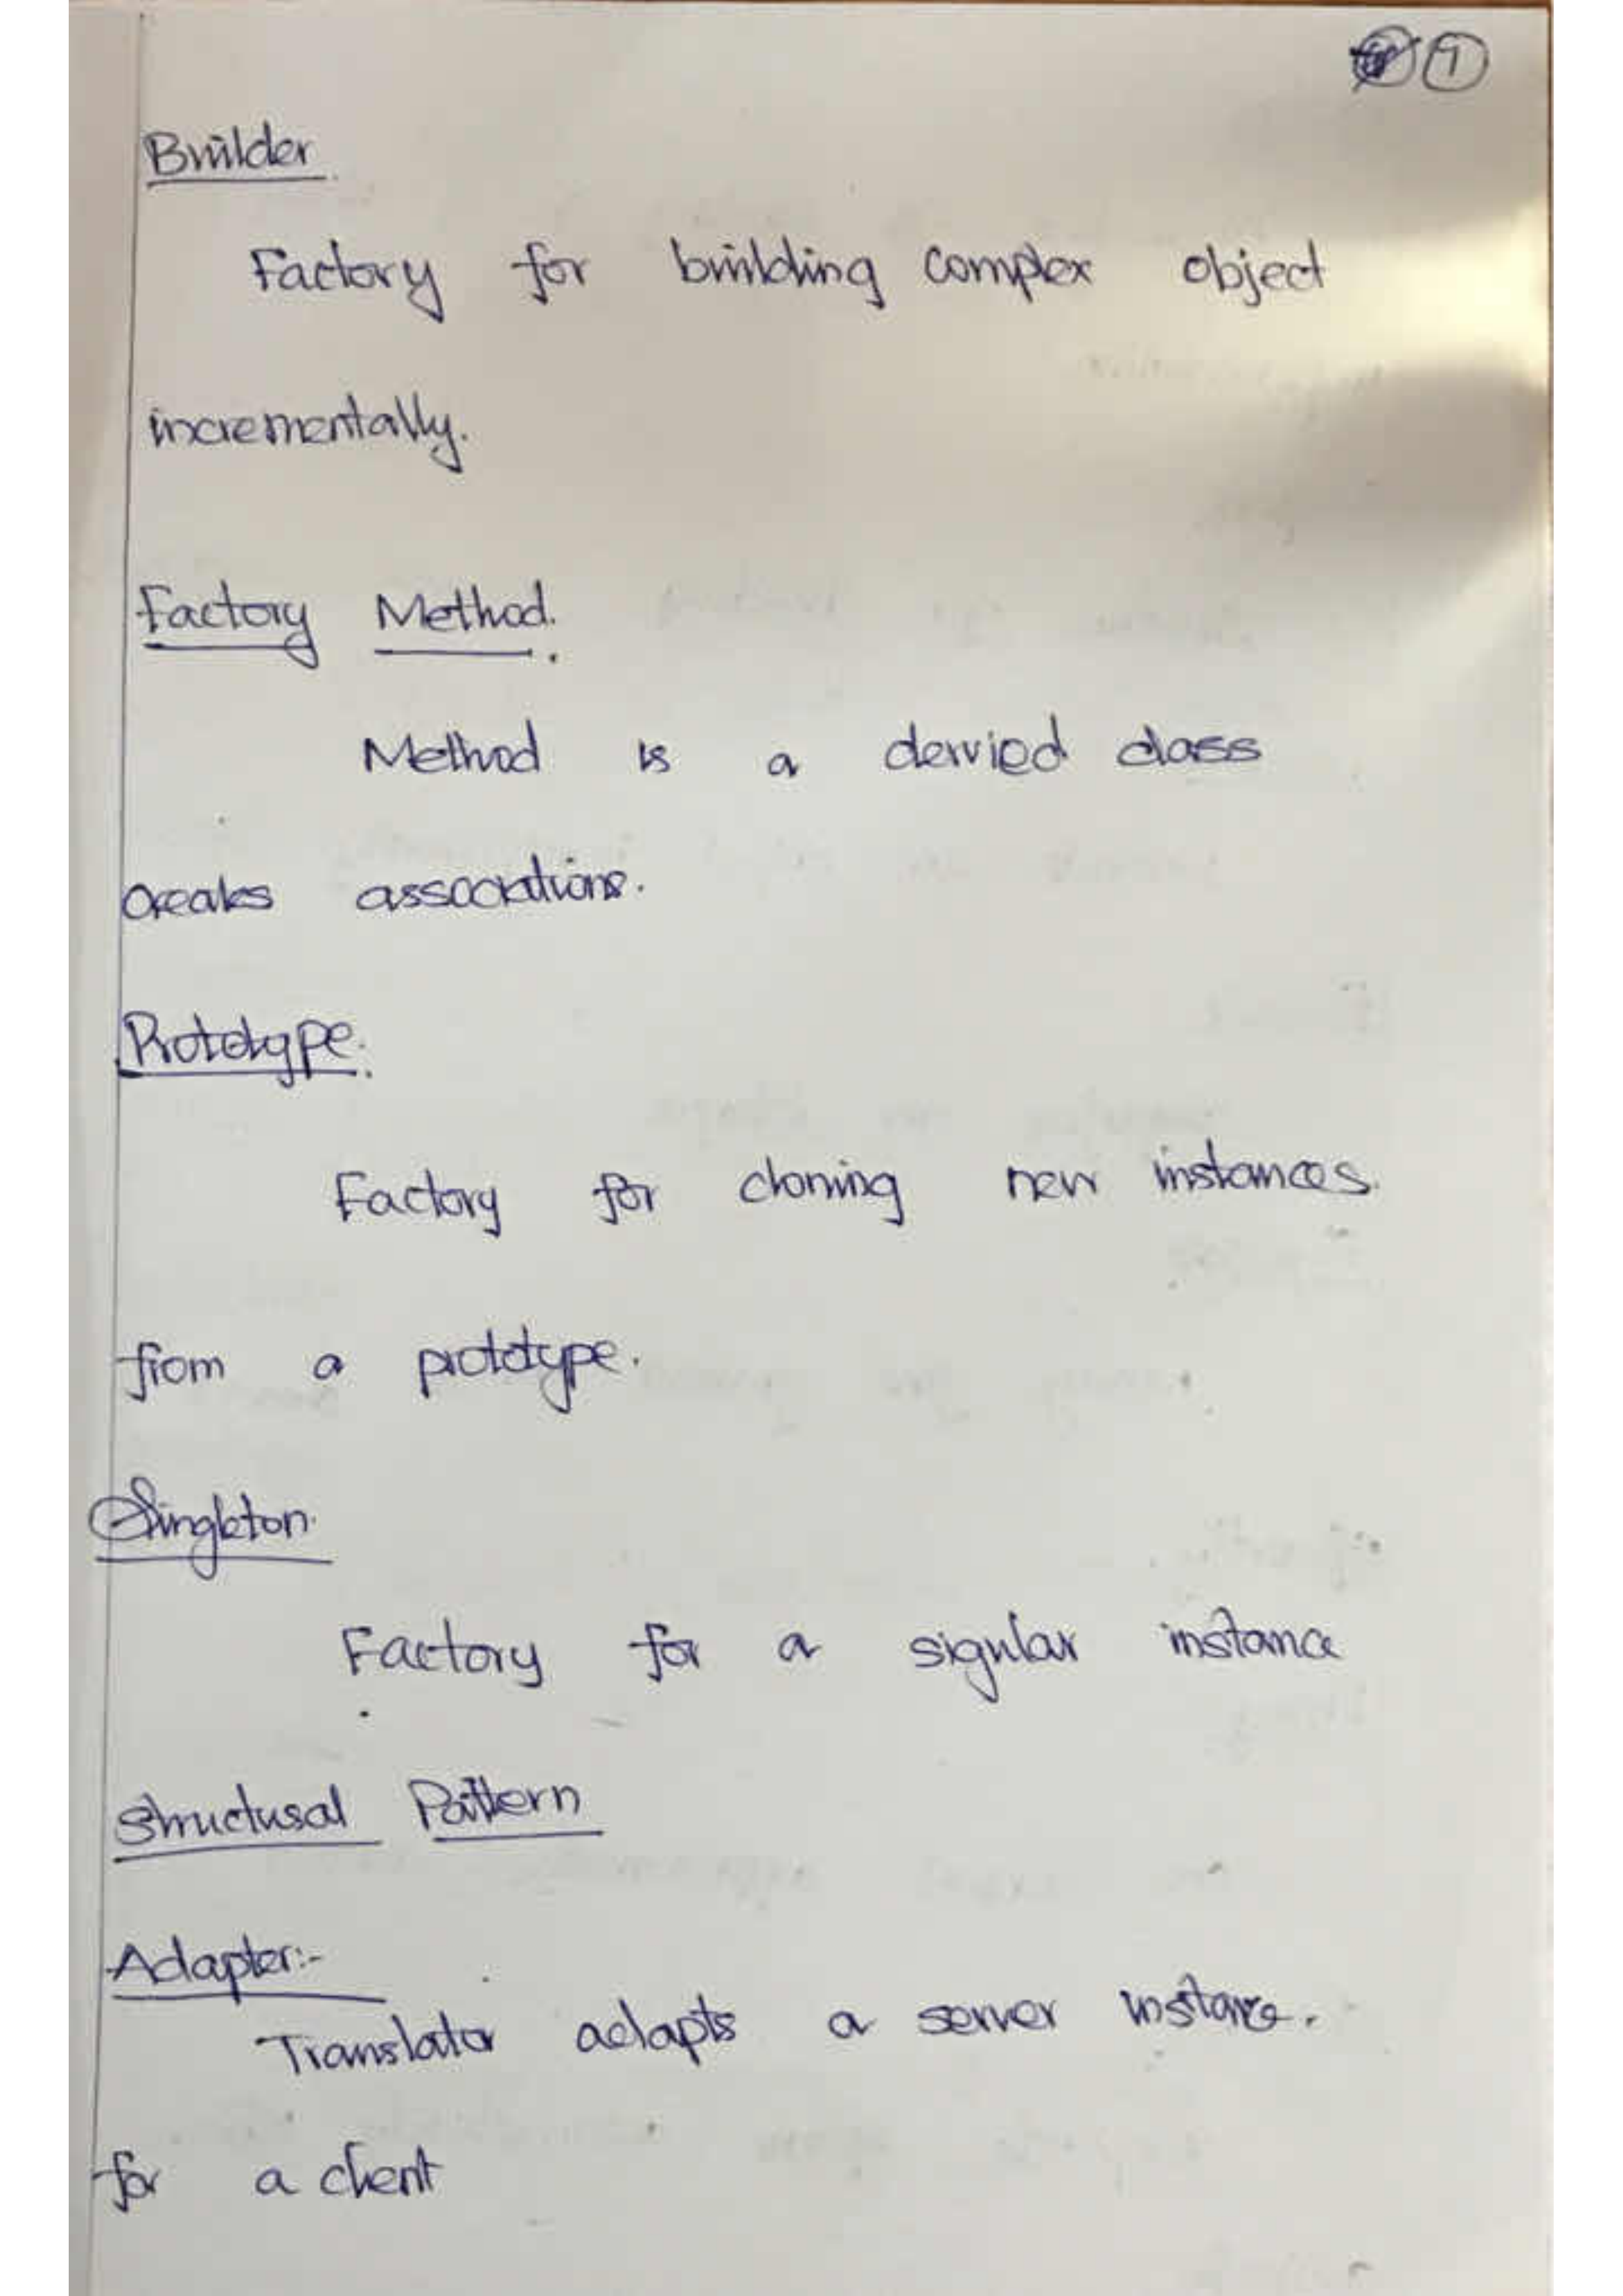 7
Builder
Factory for building complex object
incrementally.
Factory Method.
Method is a dervied class
creates associations.
Prototype.
Factory for cloning new instances.
from a prototype.
Singleton.
Factory for a signlar instance
Structusal Pattern
Adapter:-
Translator adapts a server instance.
for a client